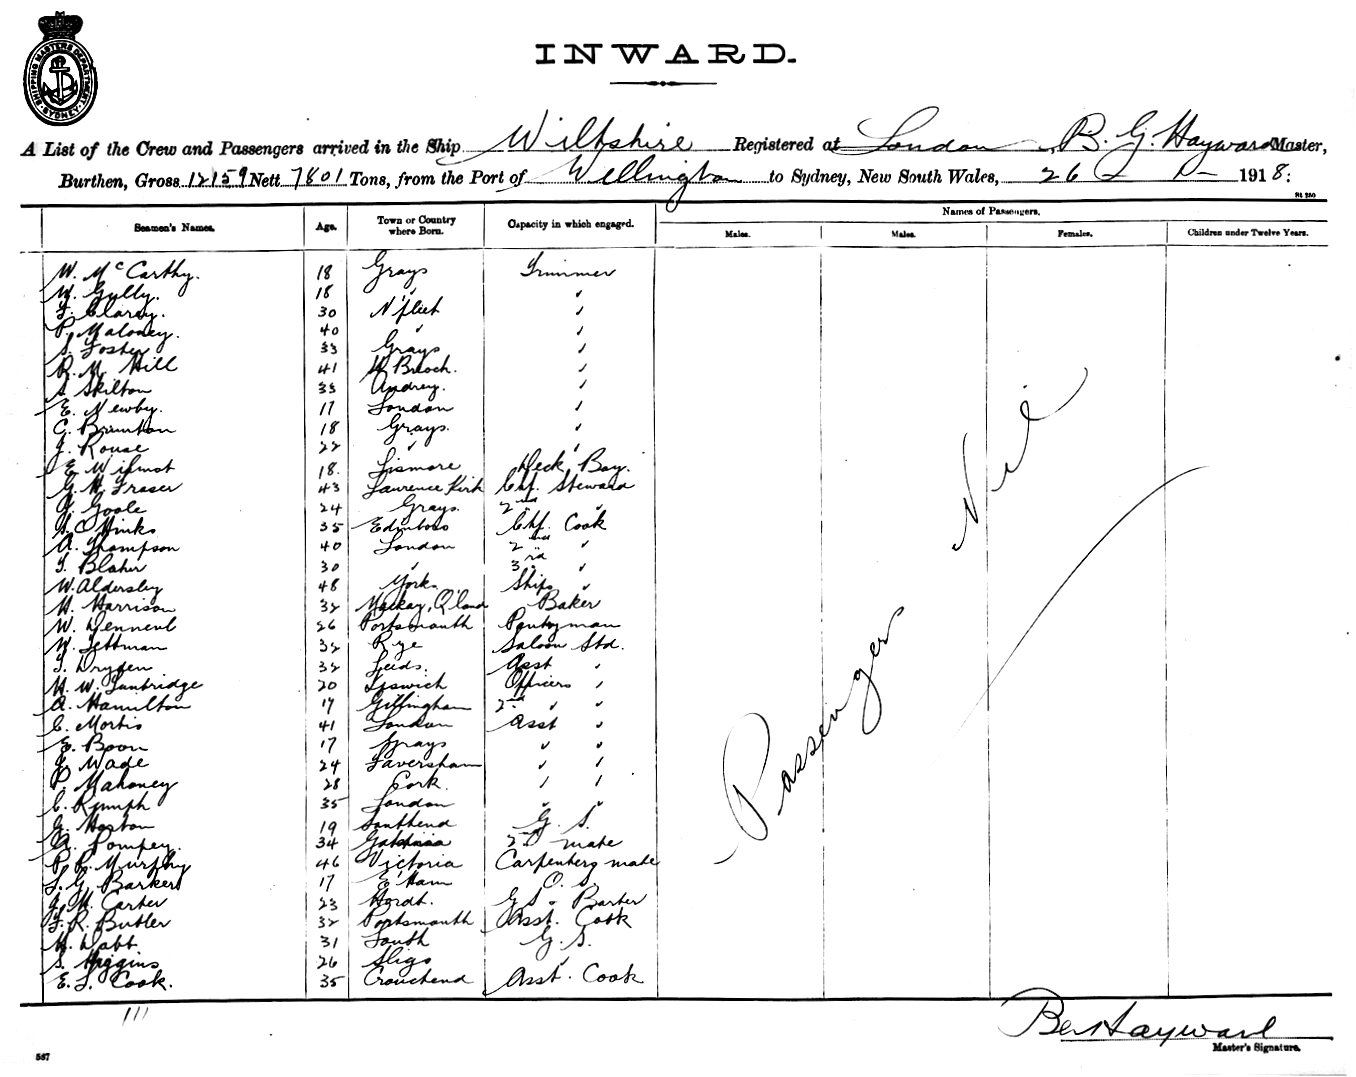 SHIPPING MASTERS DEPARTMENT SYDNEY
INWARD.
A List of the Crew and Passengers arrived in the Ship Wiltshire Registered at London, B. G. Hayward Master,
Burthen, Gross 12159 Nett 7801 Tons, from the Port of Wellington to Sydney, New South Wales, 26 1918:
Seamen's Names. Age. Town or Country where Born. Capacity in which engaged. Names of Passengers.
Males. Males. Females. Children under Twelve Years.
W. McCarthy. 18 Grays Trimmer
W. Gully. 18 " "
F. Clarey. 30 N'fleet "
P. Maloney. 40 " "
S. Foster 33 Grays "
R. M. Hill 41 "
S. Skilton 33 "
E. Newby. 17 London "
C. Brunton 18 Grays. "
J. Rouse 22 " "
E. Wilmot 18. Lismore Deck Boy.
G. H. Fraser 43 Laurence Kirk Chf. Steward
Goole 24 Grays. 2nd "
S. C. Hinks 35 Edinboro Chf. Cook
A. Thompson 40 London 2nd "
30 " 3rd "
W. Aldersley 48 York Ships "
H. Harrison 32 Mackay, Q'land Baker
W. 26 Portsmouth Pantryman
W. Tettman 32 Rye Saloon Std.
T. Dryden 32 Leeds. Asst "
H. W. Tunbridge 20 Ipswich Officers "
A. Hamilton 17 Gillingham 2nd " "
C. Morris 41 London Asst "
E. Boon 17 Grays " "
Wade 24 Faversham " "
P. Mahoney 28 Cork. " "
C. Rumph 35 London " "
G. Horton 19 Southend G. S.
A. Pompey. 34 2nd mate
P. R. Murphy 46 Victoria Carpenters mate
Barker 17 E'Ham O. S.
J. H. Carter 23 G S - Barber
F. R. Butler 32 Portsmouth Asst. Cook
H. 31 South G. S.
S. Higgins 26 Sligo "
E. J. Cook. 35 Crouchend Asst. Cook
Passengers Nil
111
B G Hayward
Master's Signature.
567